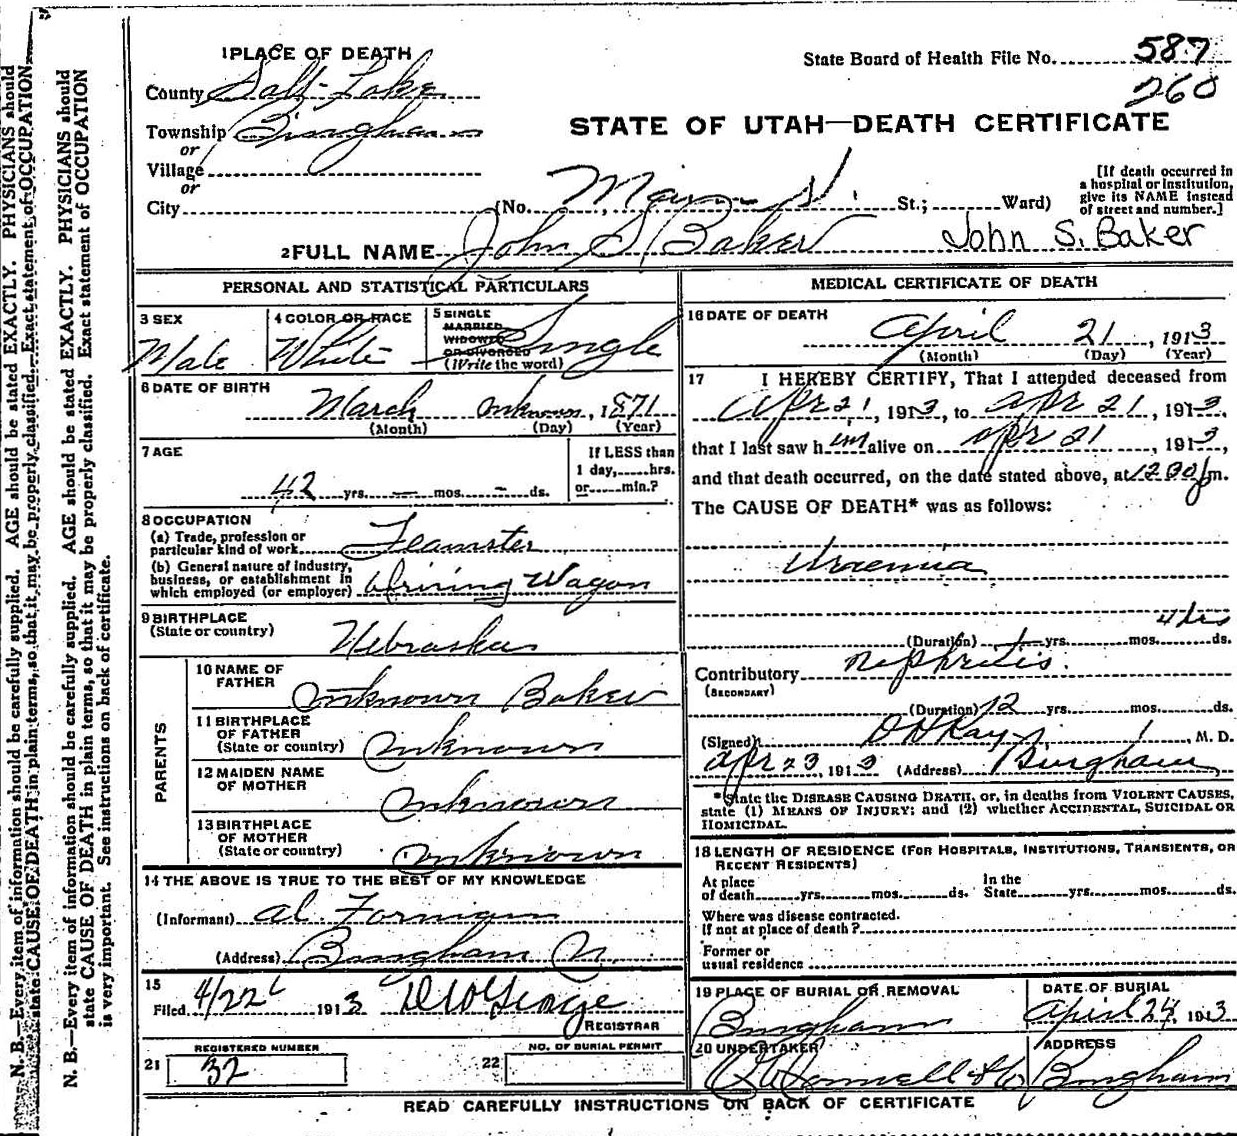 N. B.—Every item of information should be carefully supplied. AGE should be stated EXACTLY. PHYSICIANS should
state CAUSE OF DEATH in plain terms, so that it may be properly classified. Exact statement of OCCUPATION
N. B.—Every item of information should be carefully supplied. AGE should be stated EXACTLY. PHYSICIANS should
state CAUSE OF DEATH in plain terms, so that it may be properly classified. Exact statement of OCCUPATION
is very important. See instructions on back of certificate.
1 PLACE OF DEATH
State Board of Health File No. 587
260
County Salt Lake
Township Bingham
or
Village
or
STATE OF UTAH—DEATH CERTIFICATE
[If death occurred in
a hospital or institution,
give its NAME instead
of street and number.]
City (No. Main St. St.; Ward)
2 FULL NAME John S Baker John S. Baker
PERSONAL AND STATISTICAL PARTICULARS
3 SEX
Male
4 COLOR OR RACE
White
5 SINGLE
MARRIED
WIDOWED
OR DIVORCED
(Write the word)
Single
6 DATE OF BIRTH
March unknown, 1871
(Month) (Day) (Year)
7 AGE
42 yrs. — mos. - ds.
If LESS than
1 day, hrs.
or min.?
8 OCCUPATION
(a) Trade, profession or
particular kind of work Teamster
(b) General nature of industry,
business, or establishment in
which employed (or employer) Driving Wagon
9 BIRTHPLACE
(State or country) Nebraska
PARENTS
10 NAME OF
FATHER Unknown Baker
11 BIRTHPLACE
OF FATHER
(State or country) Unknown
12 MAIDEN NAME
OF MOTHER Unknown
13 BIRTHPLACE
OF MOTHER
(State or country) Unknown
14 THE ABOVE IS TRUE TO THE BEST OF MY KNOWLEDGE
(Informant) Al Forman
(Address) Bingham
15
Filed 4/22 1913
REGISTRAR
REGISTERED NUMBER
21 32
NO. OF BURIAL PERMIT
22
MEDICAL CERTIFICATE OF DEATH
16 DATE OF DEATH
April 21, 1913
(Month) (Day) (Year)
17 I HEREBY CERTIFY, That I attended deceased from
Apr 21, 1913, to Apr 21, 1913,
that I last saw him alive on Apr 21, 1913
and that death occurred, on the date stated above, at 1230 pm.
The CAUSE OF DEATH* was as follows:
Uraemia
(Duration) yrs. mos. ds.
Contributory Nephritis.
(SECONDARY)
(Duration) 12 yrs. mos. ds.
(Signed) Ray, M. D.
Apr 23, 1913 (Address) Bingham
*State the DISEASE CAUSING DEATH, or, in deaths from VIOLENT CAUSES,
state (1) MEANS OF INJURY; and (2) whether ACCIDENTAL, SUICIDAL OR
HOMICIDAL.
18 LENGTH OF RESIDENCE (FOR HOSPITALS, INSTITUTIONS, TRANSIENTS, OR
RECENT RESIDENTS)
At place
of death yrs. mos. ds.
In the
State yrs. mos. ds.
Where was disease contracted.
If not at place of death?
Former or
usual residence
19 PLACE OF BURIAL OR REMOVAL
Bingham
DATE OF BURIAL
April 24, 1913
20 UNDERTAKER
O'Donnell & Co
ADDRESS
Bingham
READ CAREFULLY INSTRUCTIONS ON BACK OF CERTIFICATE